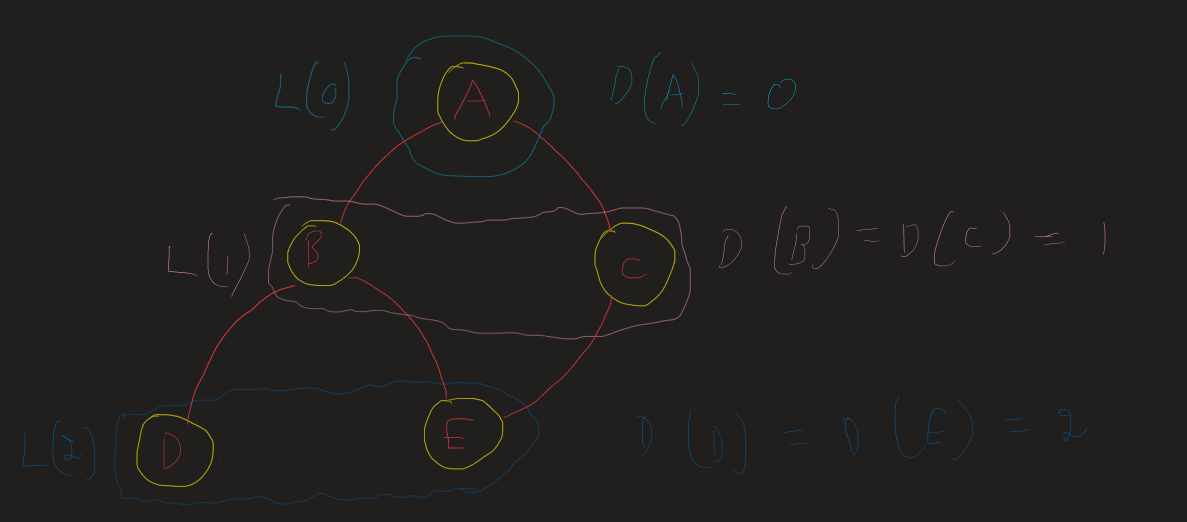 L(0) A D(A) = 0
L(1) B C D(B) = D(C) = 1
L(2) D E D(D) = D(E) = 2